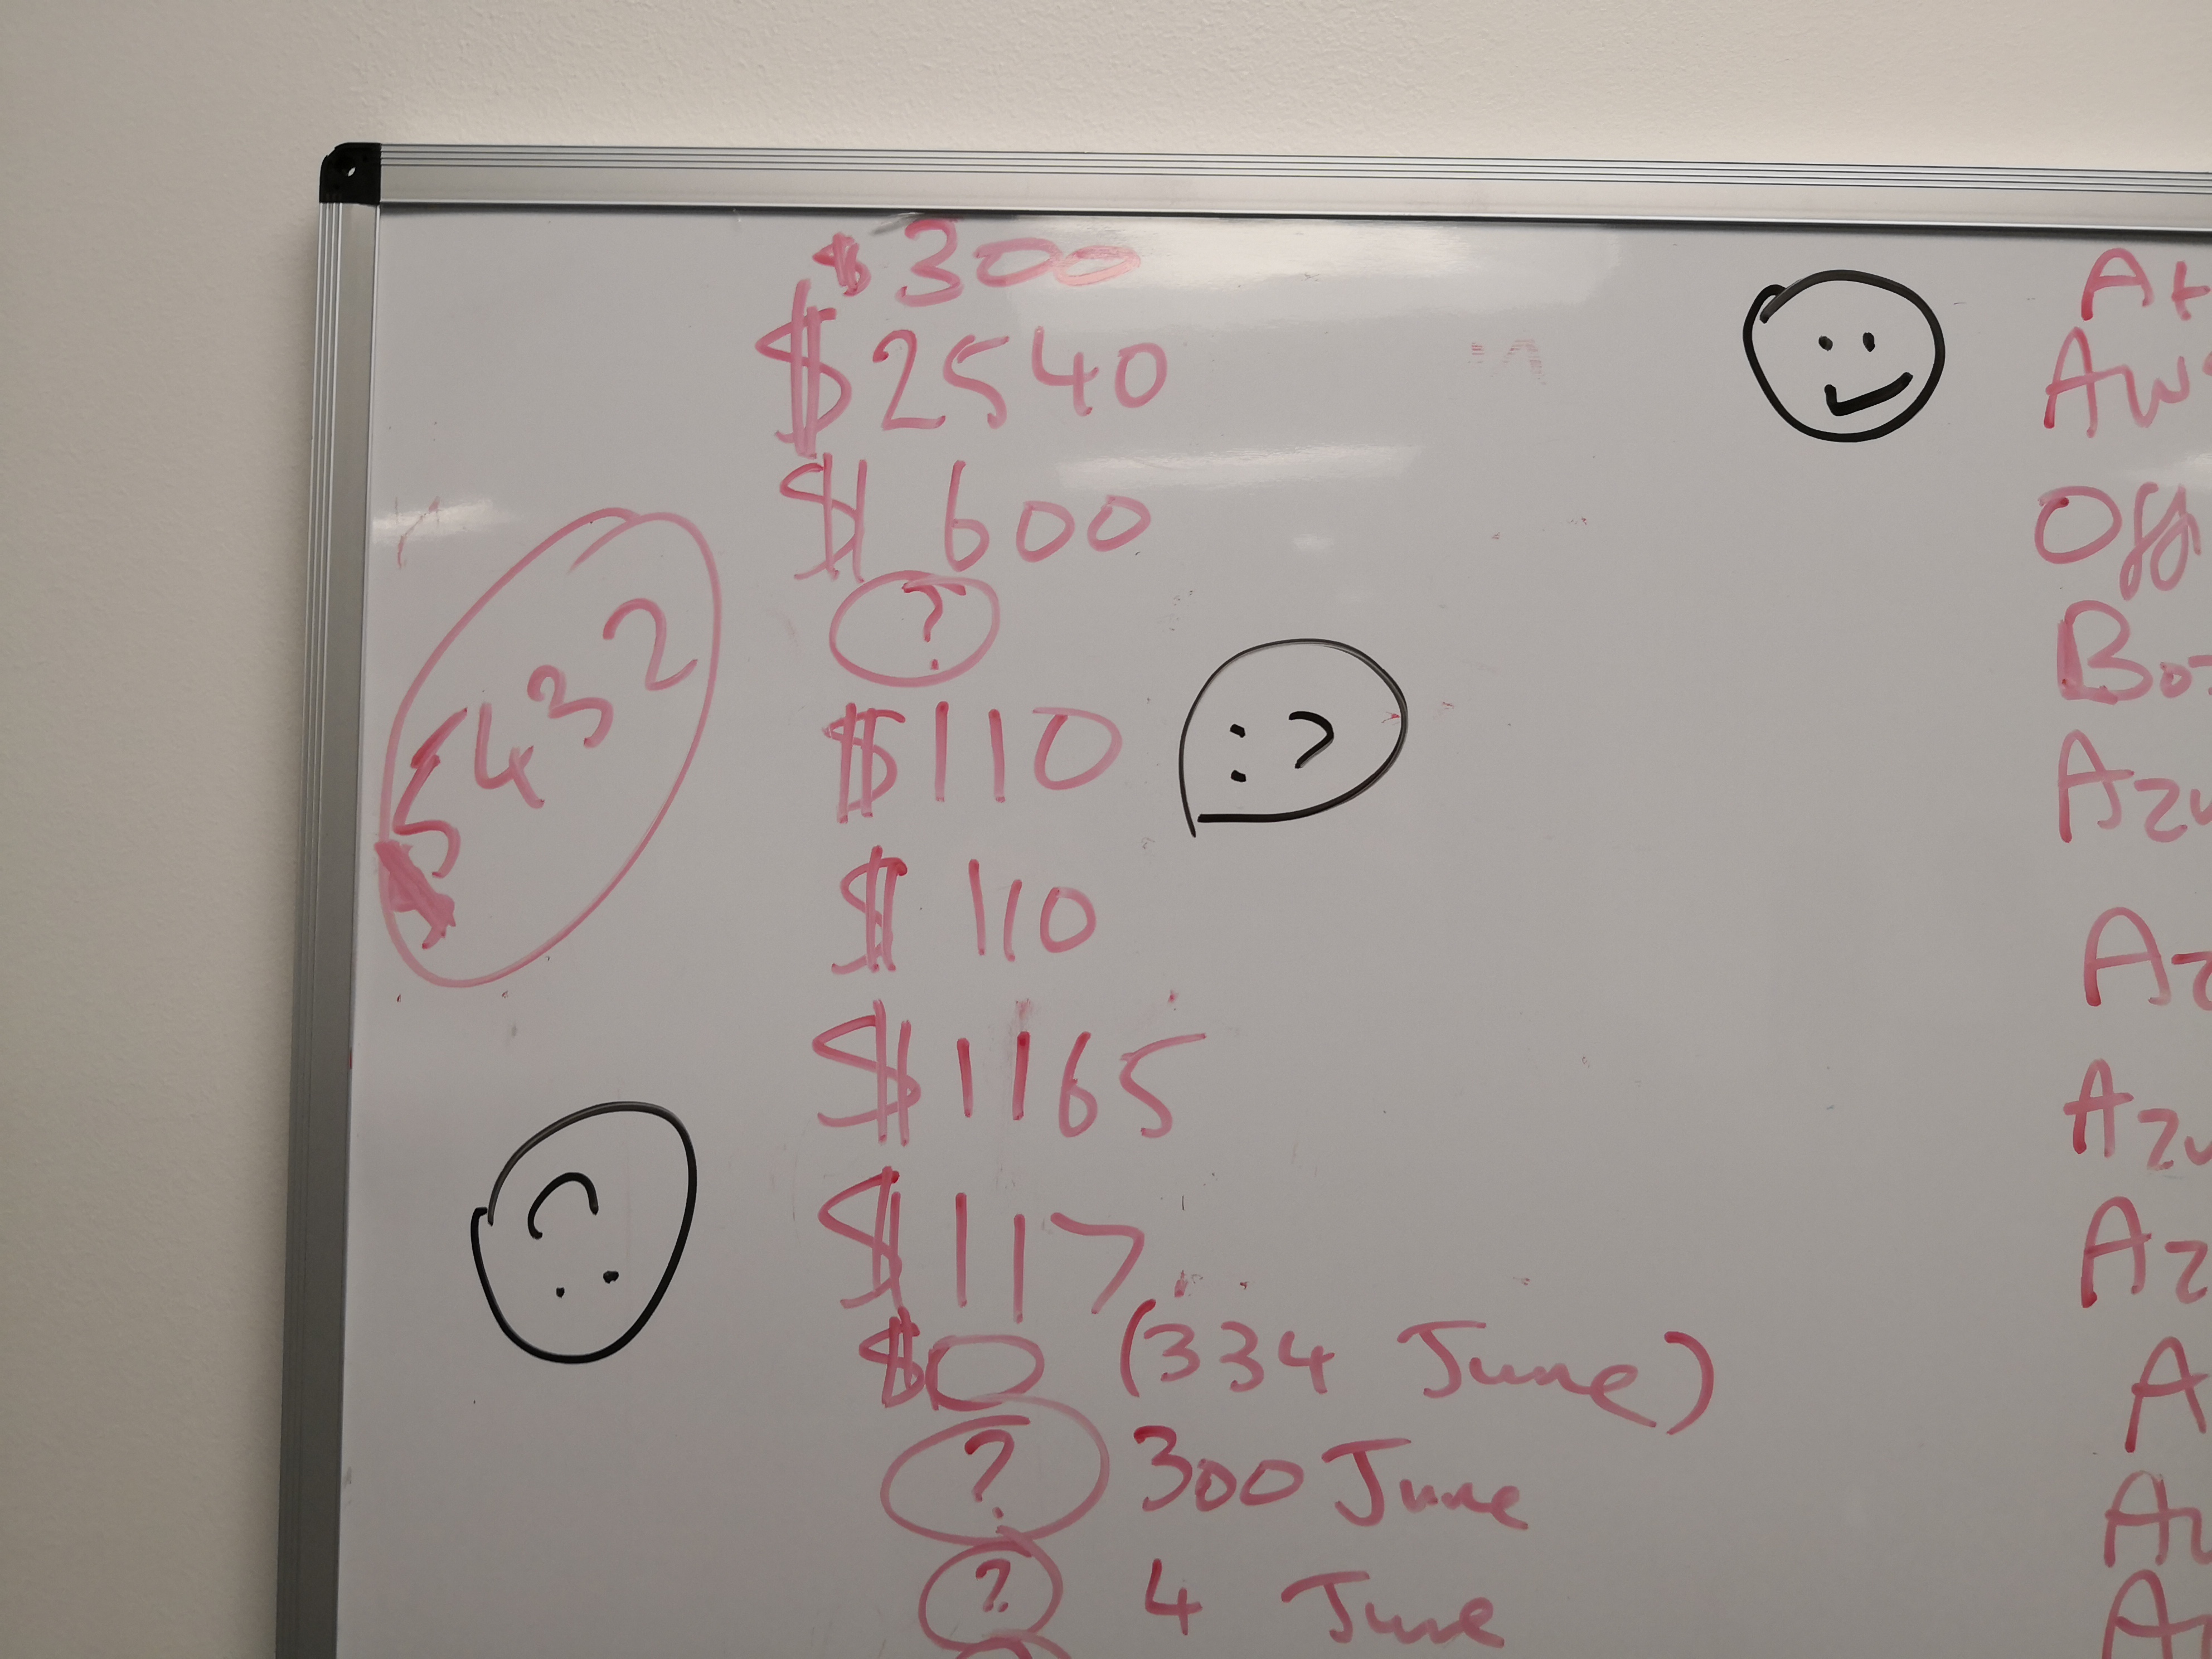 $300
$2540
$600
?
$110
$110
$1165
$117
$0 (334 June)
? 300 June
? 4 June
5432
:)
Aw
Off
Bo
Azu
Az
Azu
Az
A
A